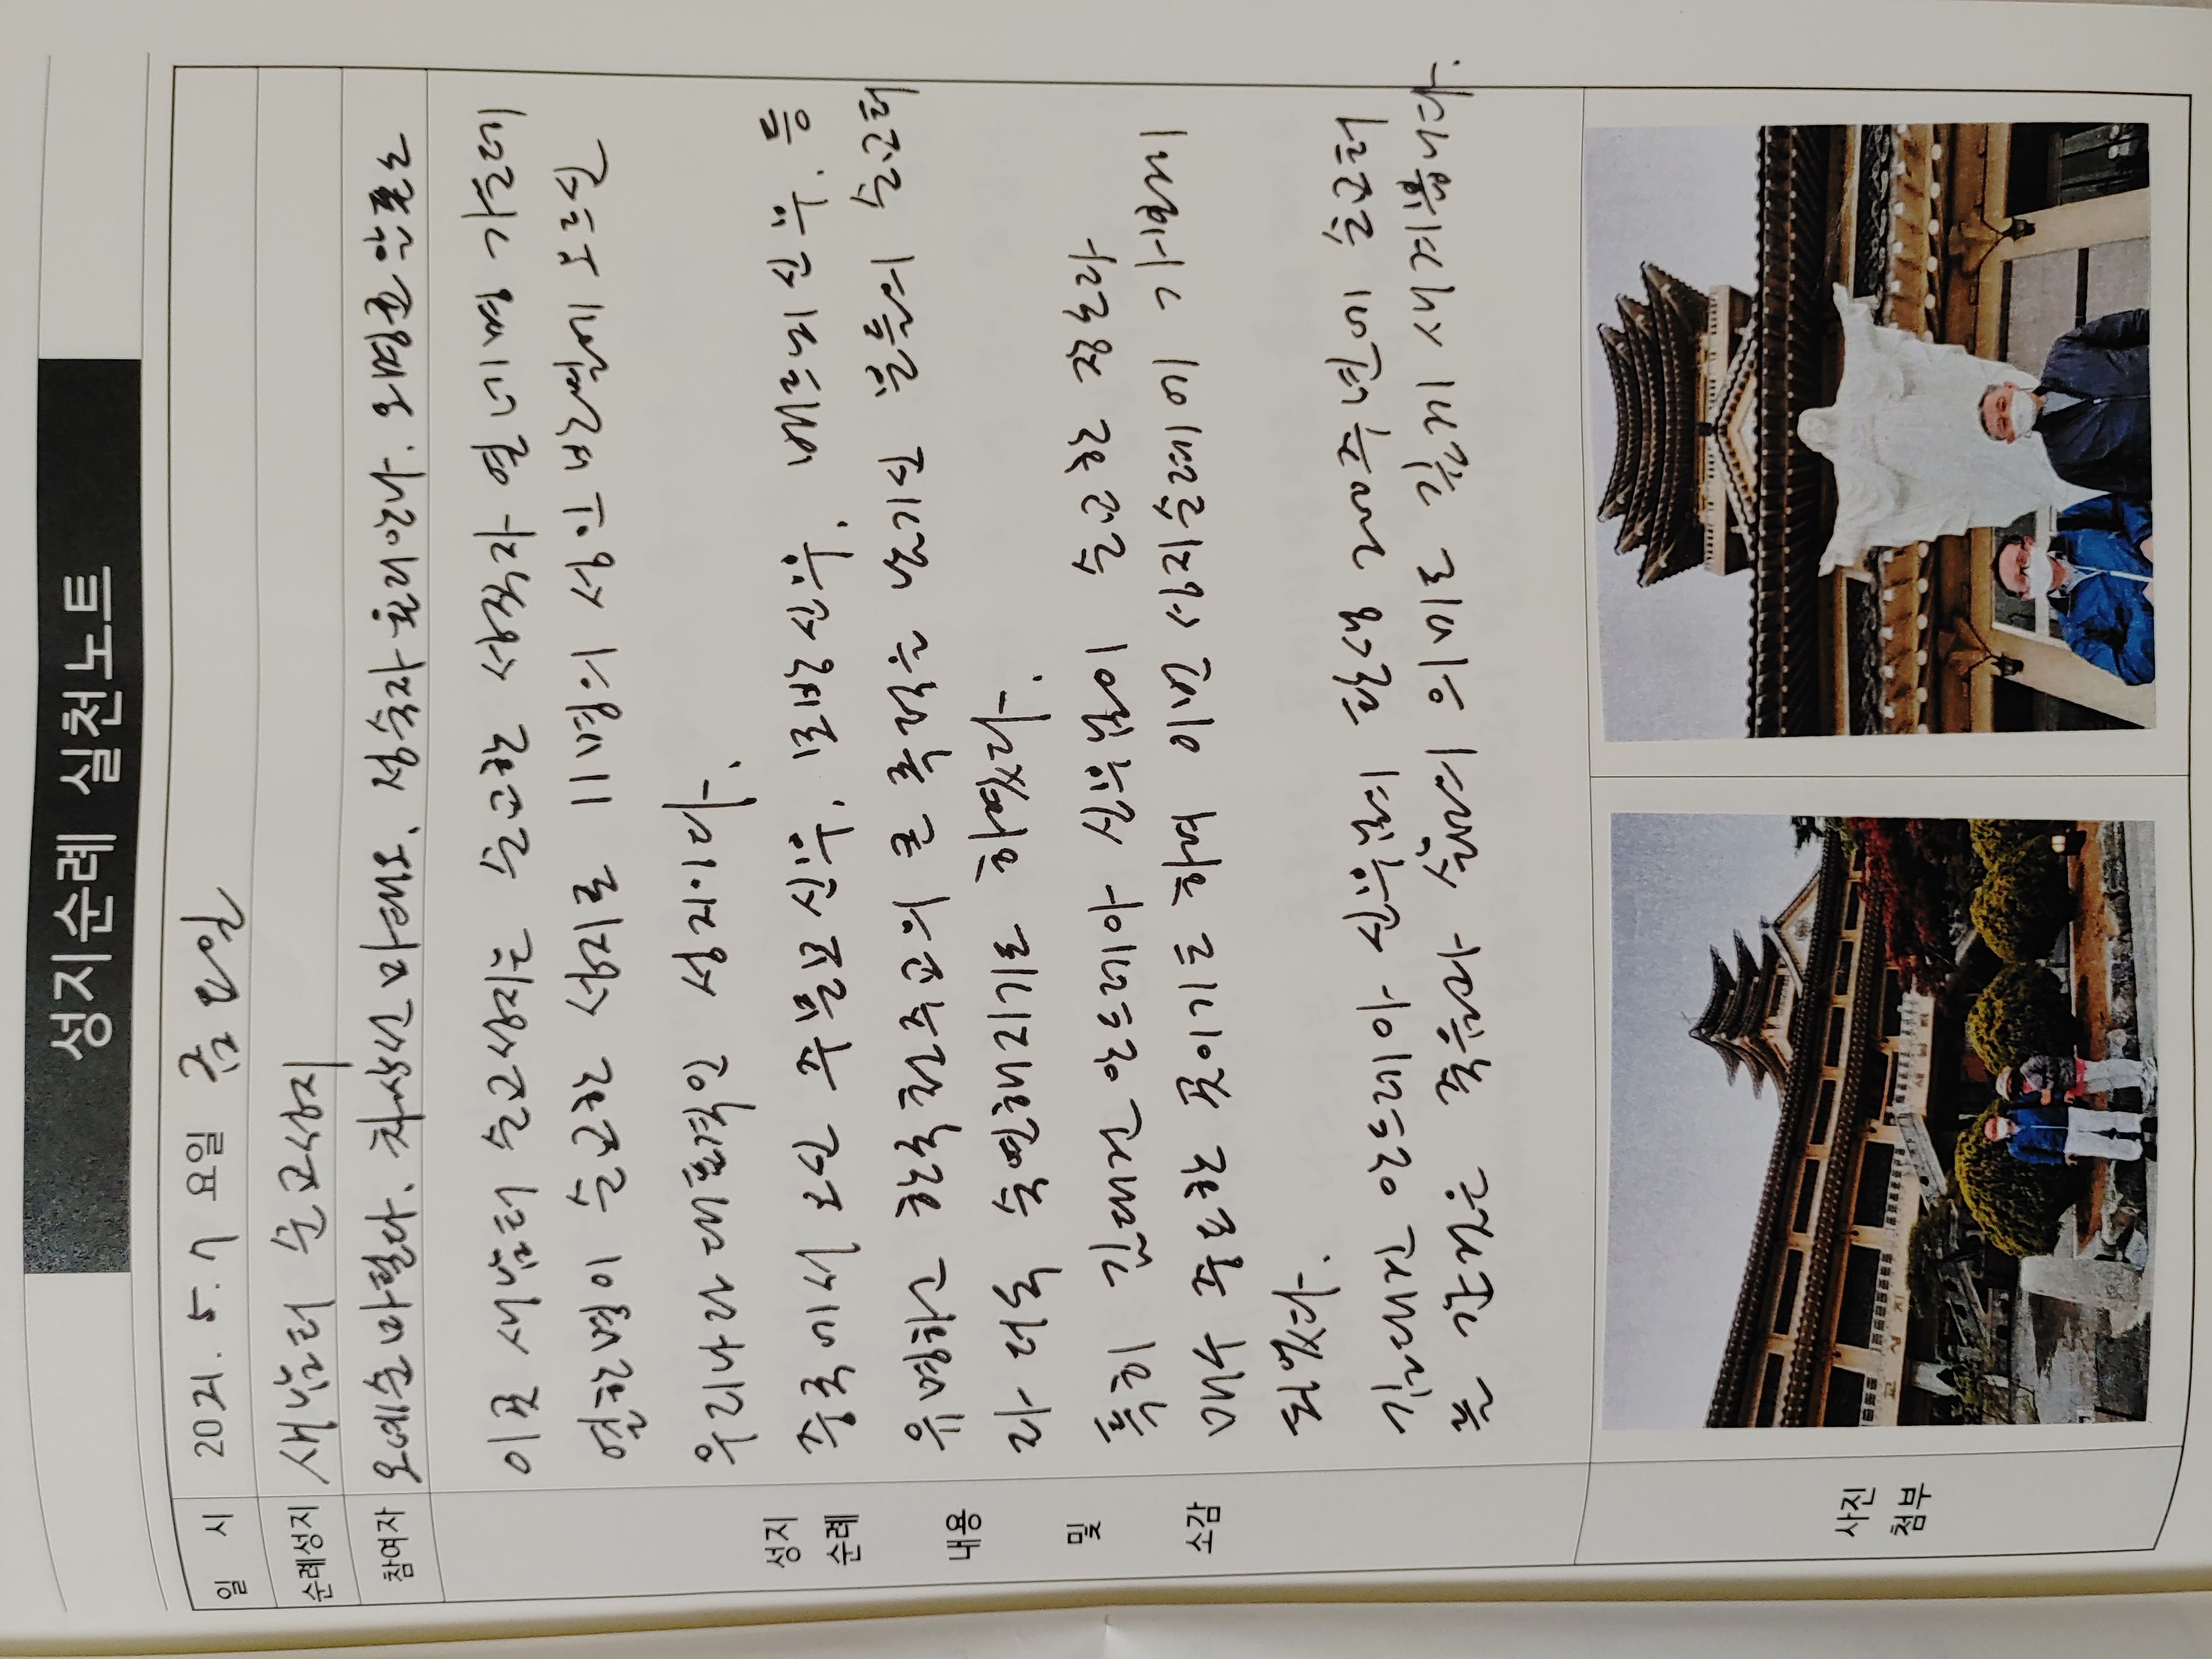 성지순례 실천노트
일 시 2021. 5. 7 요일 금요일
순례성지 새남터 순교성지
참여자 오예순 마틸다. 차상선 마태오. 정숙자 율리안나. 오명균 알폰소
이곳 새남터 순교성지는 순교한 성직자 열네명 가운데
열한명이 순교한 성지로 11명의 성인 반열에 오르신
우리나라 대표격인 성지이다.
중국에서 오신 주문모신부, 모방신부, 베르뇌신부, 등
유명하고 한국천주교의 큰 족적을 남기신 분들의 순교터
라 더욱 숙연해지기도 하였다.
특히 김대건 안드레아 신부님이 순교한 장소라
매우 중요한 곳이기도 하여 이번 성지순례에 가보게
되었다.
김대건 안드레아 신부님의 탄생 200주년에 순교터
를 간것은 죽음과 삶의 의미도 깊게 새겨봅니다.
성지
순례
내용
및
소감
사진
첨부
교성지
새남터